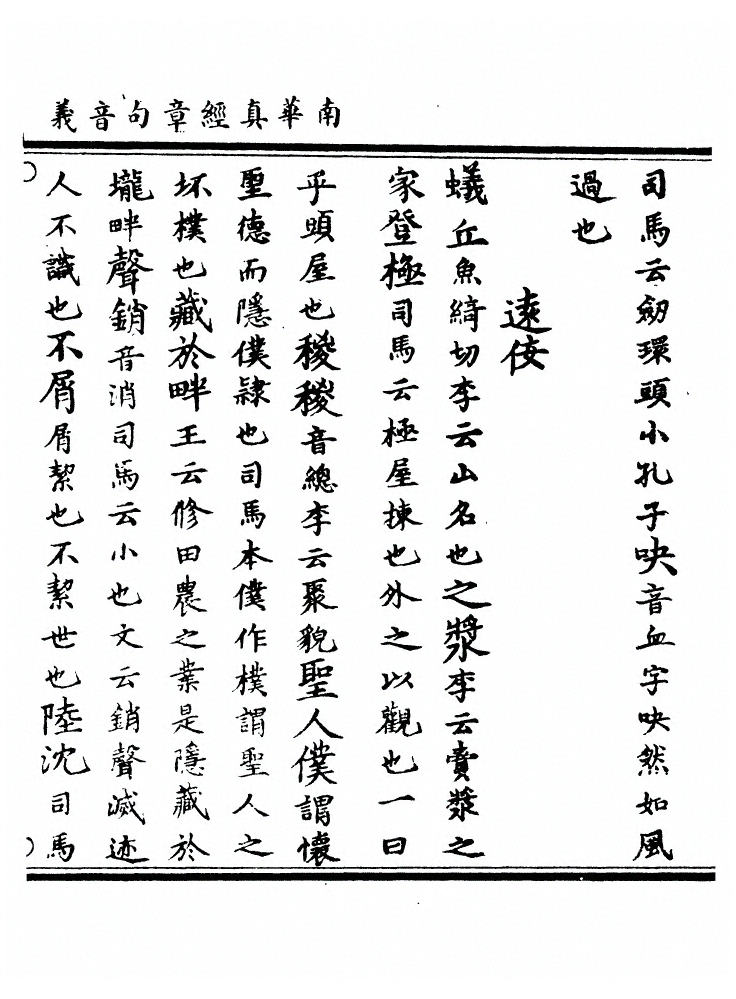 南華真經章句音義
司馬云劒環頭小孔子吷音血字吷然如風
過也
遠佞
蟻丘魚綺切李云山名也之漿李云賣漿之
家登極司馬云極屋揀也外之以觀也一曰
乎頭屋也稯稯音總李云聚貌聖人僕謂懷
聖德而隱僕隷也司馬本僕作樸謂聖人之
坏樸也藏於畔王云修田農之業是隱藏於
壠畔聲銷音消司馬云小也文云銷聲滅迹
人不識也不屑屑絜也不絜世也陸沈司馬